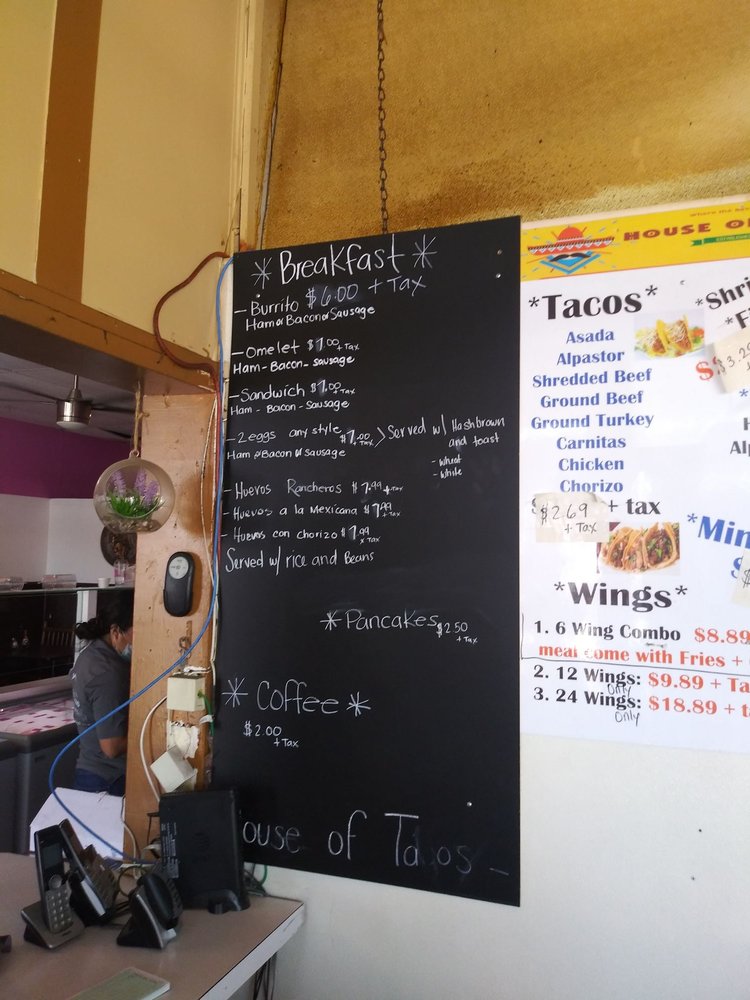 * Breakfast *
- Burrito $6.00 + Tax
Ham or Bacon or Sausage
- Omelet $7.00 + Tax
Ham - Bacon - Sausage
- Sandwich $7.00 + Tax
Ham - Bacon - Sausage
- 2 eggs any style $7.00 + Tax > Served w/ Hashbrown
and toast
Ham or Bacon or Sausage
- Wheat
- White
- Huevos Rancheros $7.99 + Tax
- Huevos a la Mexicana $7.99 + Tax
- Huevos con chorizo $7.99 + Tax
Served w/ rice and Beans
* Pancakes $2.50
+ Tax
* Coffee *
$2.00
+ Tax
ouse of Tacos -
HOUSE O
*Tacos*
Asada
Alpastor
Shredded Beef
Ground Beef
Ground Turkey
Carnitas
Chicken
Chorizo
$2.69 + tax
+ Tax
*Shri
*F
$3.29
*Min
*Wings*
1. 6 Wing Combo $8.89
meal come with Fries +
2. 12 Wings: $9.89 + Ta
Only
3. 24 Wings: $18.89 + t
Only